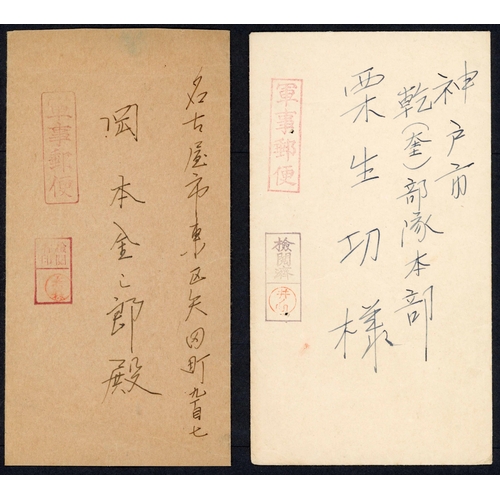 名古屋市東区矢田町九ノ七
岡本金之郎殿
軍事郵便
神戸市
乾(奎)部隊本部
栗生功様
軍事郵便
検閲済